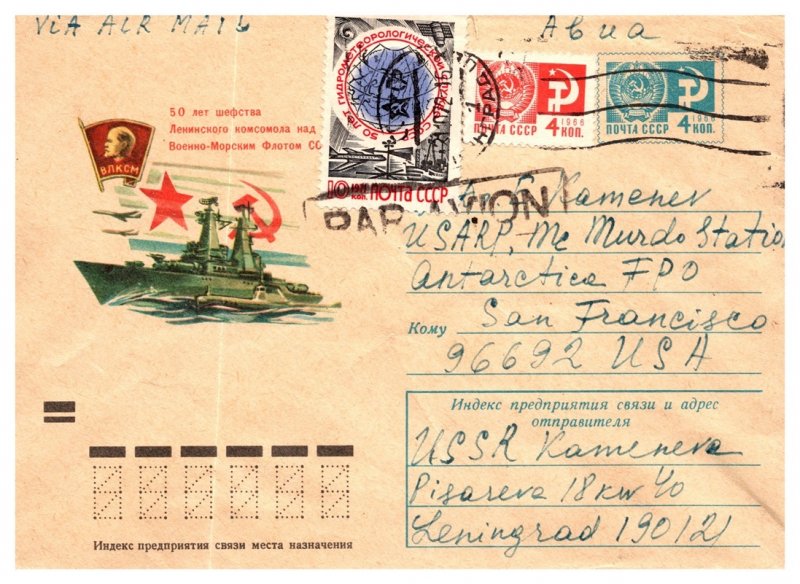 VIA AIR MAIL
Авиа
50 ЛЕТ ГИДРОМЕТЕОРОЛОГИЧЕСКОЙ СЛУЖБЕ СССР
10 КОП. ПОЧТА СССР
ПОЧТА СССР 1966 4 КОП.
ПОЧТА СССР 1966 4 КОП.
50 лет шефства
Ленинского комсомола над
Военно-Морским Флотом
ВЛКСМ
PAR AVION
Kamenev
USARP, Mc Murdo Station
Antarctica FPO
San Francisco
Кому
96692 USA
Индекс предприятия связи и адрес
отправителя
USSR Kameneva
Pisareva 18 kw 40
Leningrad 190121
Индекс предприятия связи места назначения